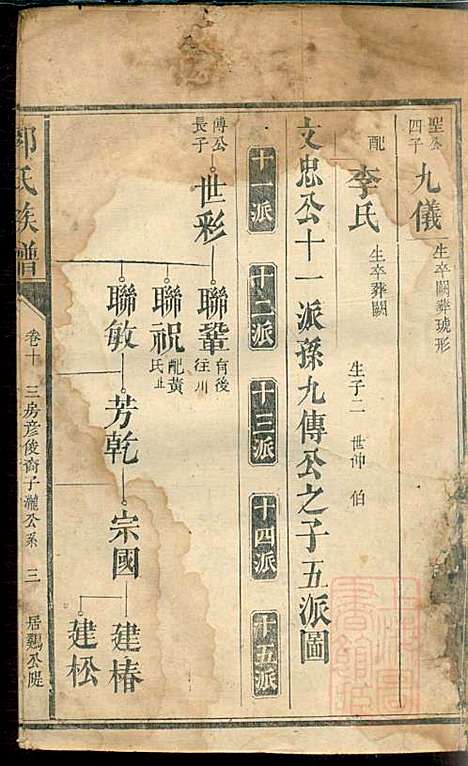 聖公四子
九儀
生卒闕葬琥形
配
李氏
生卒葬闕
生子二 世仰 伯
文忠公十一派孫九傳公之子五派圖
十一派 十二派 十三派 十四派 十五派
傳公長子
世彩
聯鞏
有後往川
聯祝
配黃氏
聯敏
芳乾
宗國
建椿
建松
氏族譜
卷十
三房彦俊裔子瀧公系
三
居鷄公隄